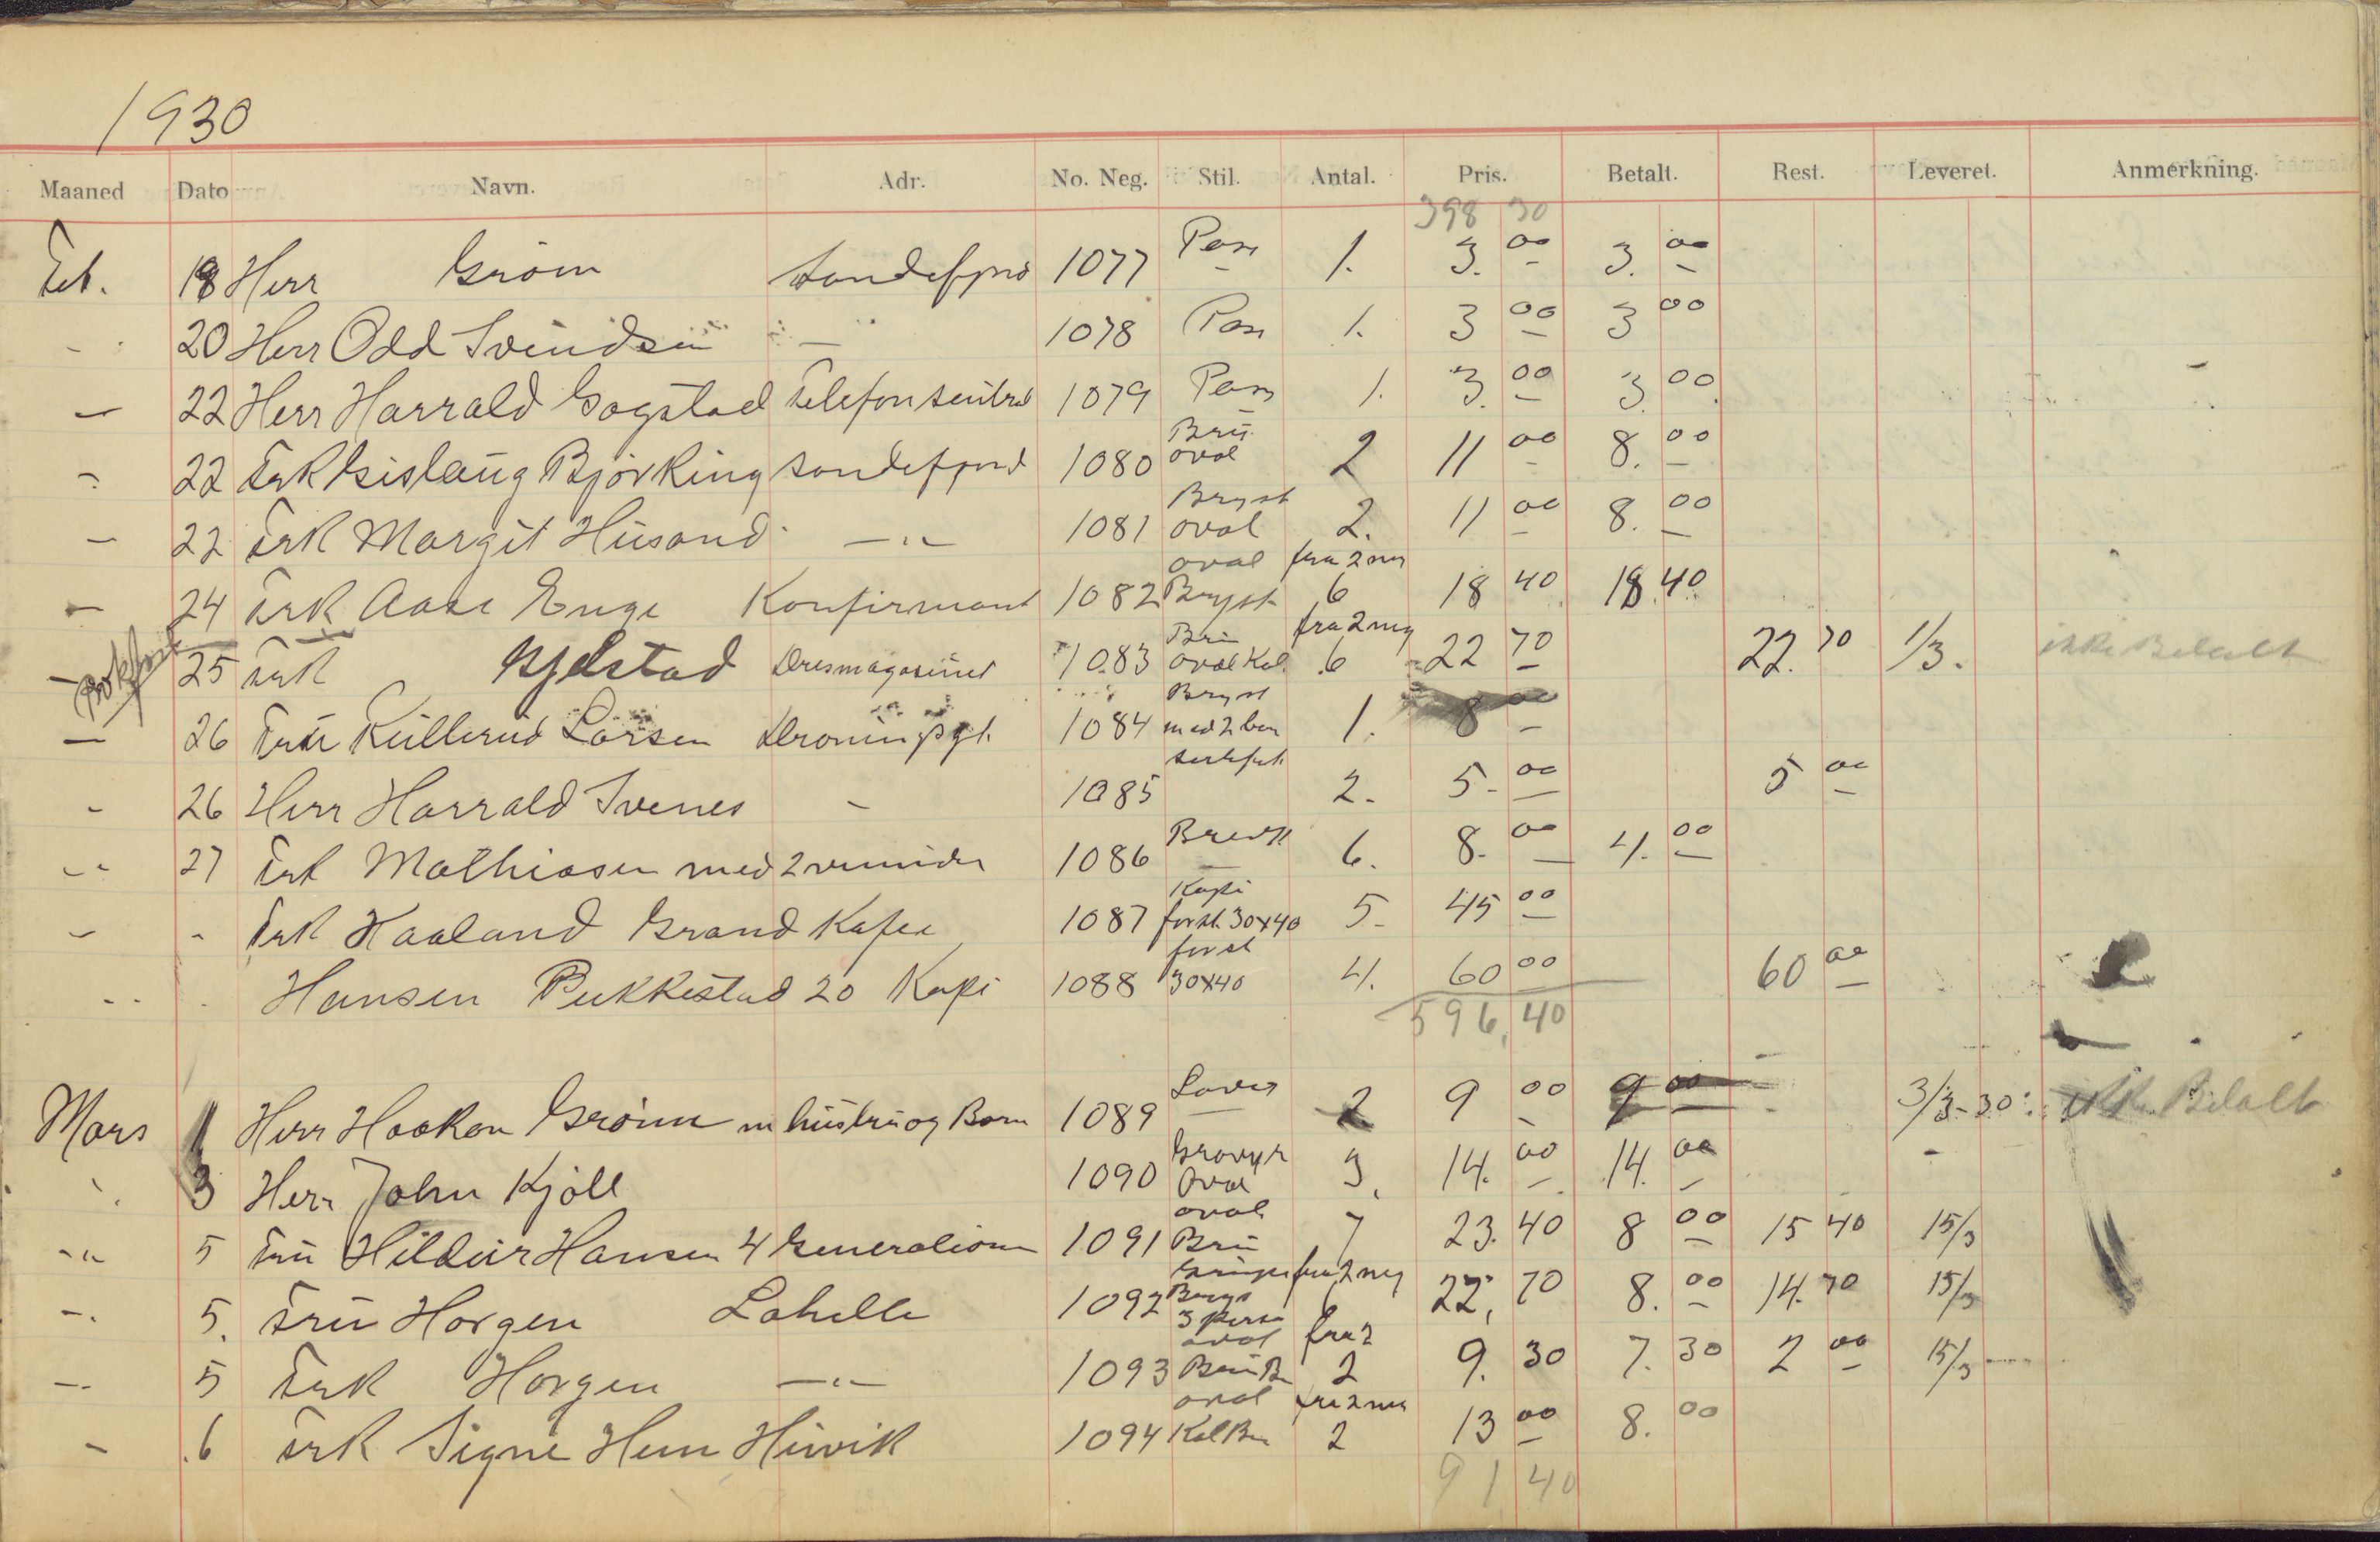 1930
Maaned Dato Navn. Adr. No. Neg. Stil. Antal. Pris. Betalt. Rest. Leveret. Anmerkning.
398 30
Feb. 18 Herr Gröm Sandefjord 1077 Pass 1. 3. 00 3. 00
20 Herr Odd Svendsen — 1078 Pass 1. 3 00 3 00
— 22 Herr Harrald Gogstad Telefonsentral 1079 Pass 1. 3. 00 3. 00
22 Frk Gislaug Björking Sandefjord 1080 Brü. oval 2 11 00 8. 00
— 22 Frk Margit Hüsand —"— 1081 Bryst oval 2. 11 00 8. 00
— 24 Frk Aase Enge Konfirmant 1082 oval Bryst fra 2 neg 6 18 40 18 40
— 25 Frk Gjelstad Dresmagasinet 1083 Brü oval Kol. fra 2 neg 6 22 70 22. 70 1/3. ikke Betalt
— 26 Frü Küllerud Larsen Droningsgt. 1084 Bryst 1. 8 00
- 26 Herr Harrald Svenes - 1085 2. 5. 00 5 00
27 Frk Mathiasen med 2 1086 6. 8. 00 4. 00
- Frk Haaland Grand Kafee 1087 Kopi forst 30x40 5. 45 00
Hansen Pukkestad 20 Kopi 1088 forst 30x40 4. 60 00 60 00
596,40
Mars 1 Herr Haakon Grönn m hüstrü og Barn 1089 2 9 00 9 00 3/3-30. ikke Betalt
3 Herr John Kjöll 1090 Gravyr Oval 3. 14. 00 14. 00
5 Frü Hildür Hansen 4 Generationer 1091 oval Brü 7 23. 40 8 00 15 40 15/3
5. Frü Horgen Lahelle 1092 3 Pers fra 2 neg 6 22, 70 8. 00 14. 70 15/3
5 Frk Horgen —"— 1093 oval fra 2 2 9. 30 7. 30 2 00 15/3
- 6 Frk Signe Hem Hüvik 1094 oval Kol fra 2 neg 2 13 00 8. 00
91 40